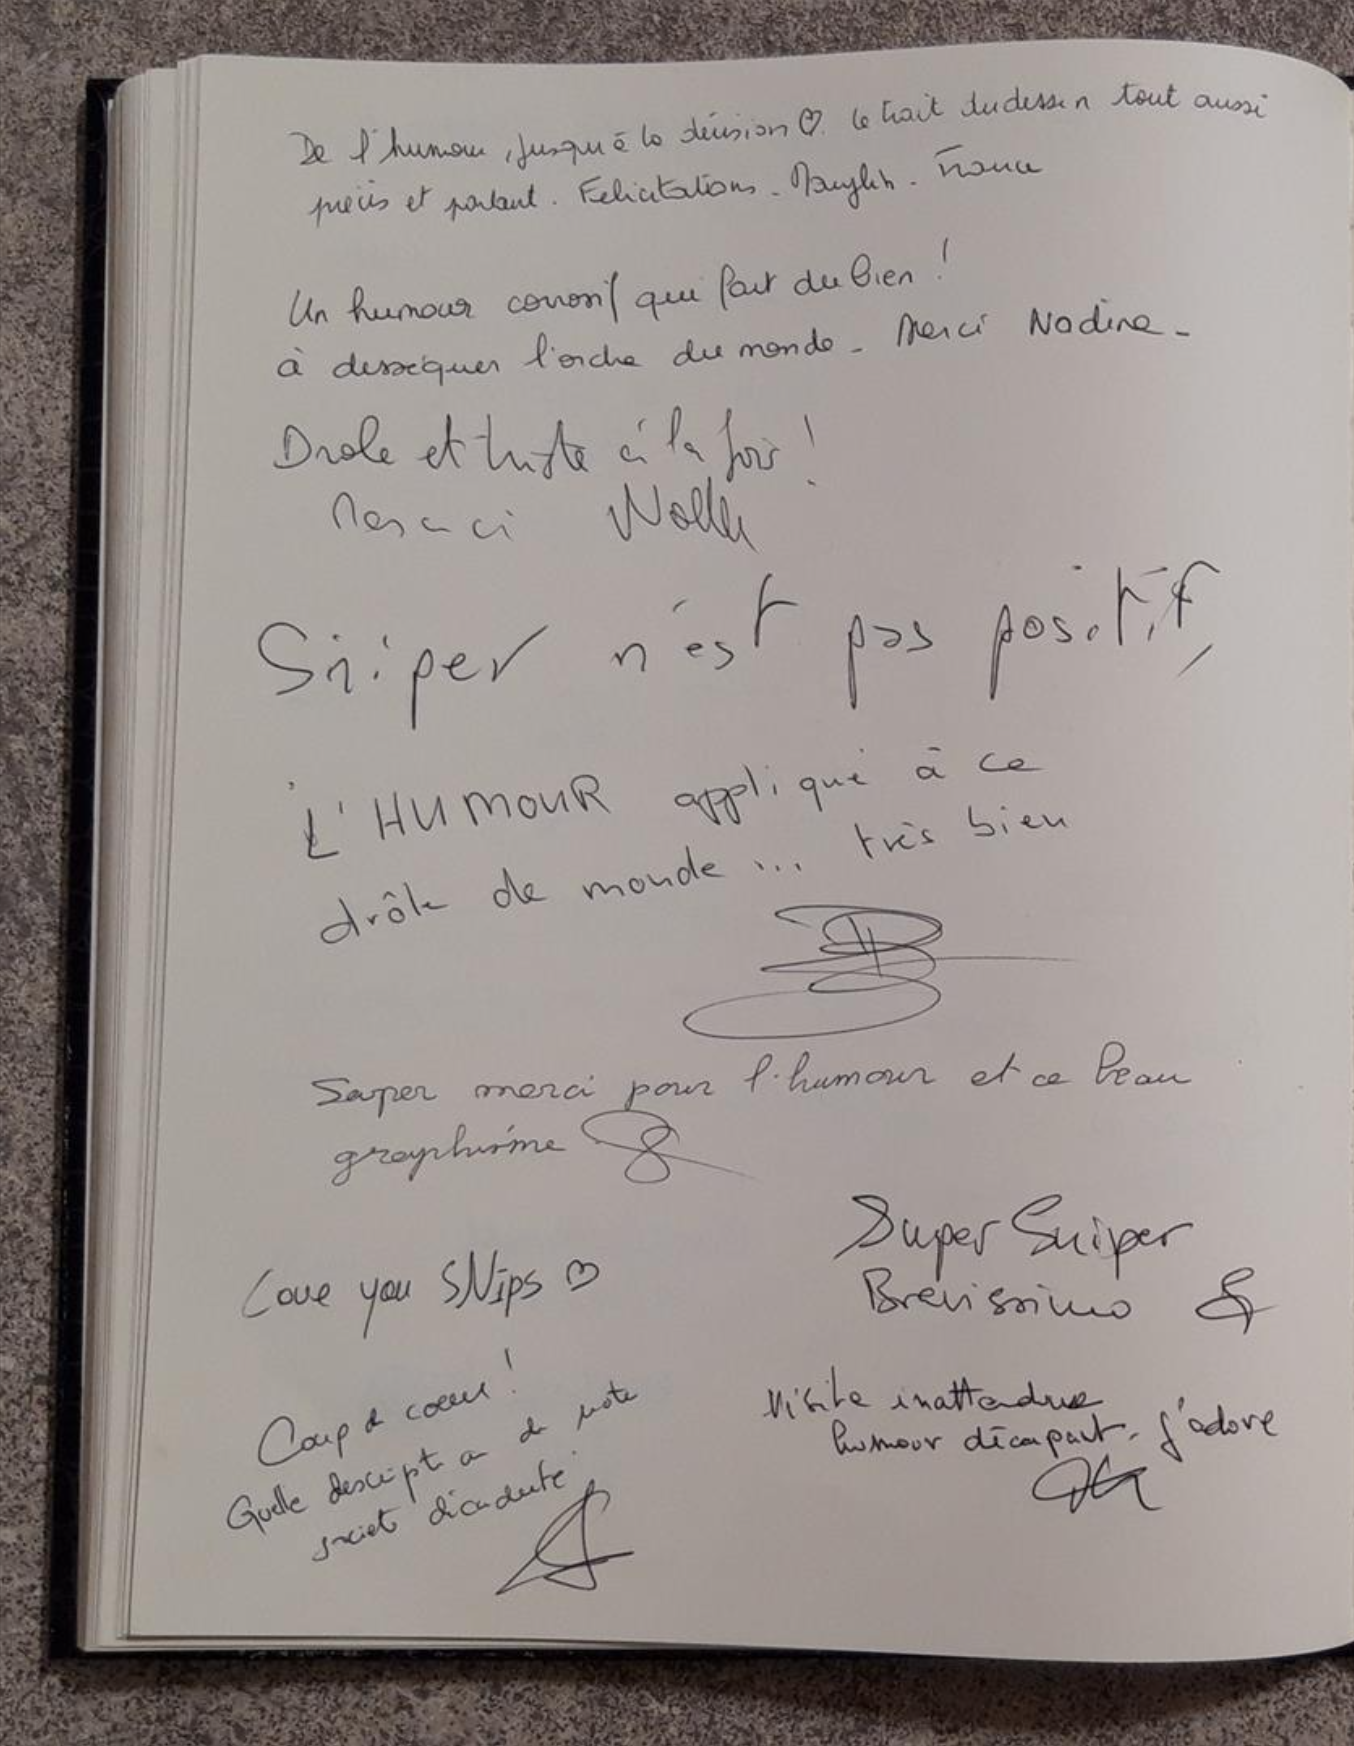 De l'humour, jusqu'à la dérision ♡. Le trait du dessin tout aussi
précis et parlant. Felicitations - - France
Un humour corrosif qui fait du bien !
à désséquer l' du monde - Merci Nadine -
Drole et triste à la fois !
Merci
Sniper n'est pas positif,
L'HUMOUR appliqué à ce
drôle de monde ... très bien
Super merci pour l'humour et ce beau
graphisme
Love you SNips ♡
Super Sniper
Brevissimo
Coup de coeur !
Quelle description de notre
société décadente.
Visite inattendue
humour décapant. J'adore